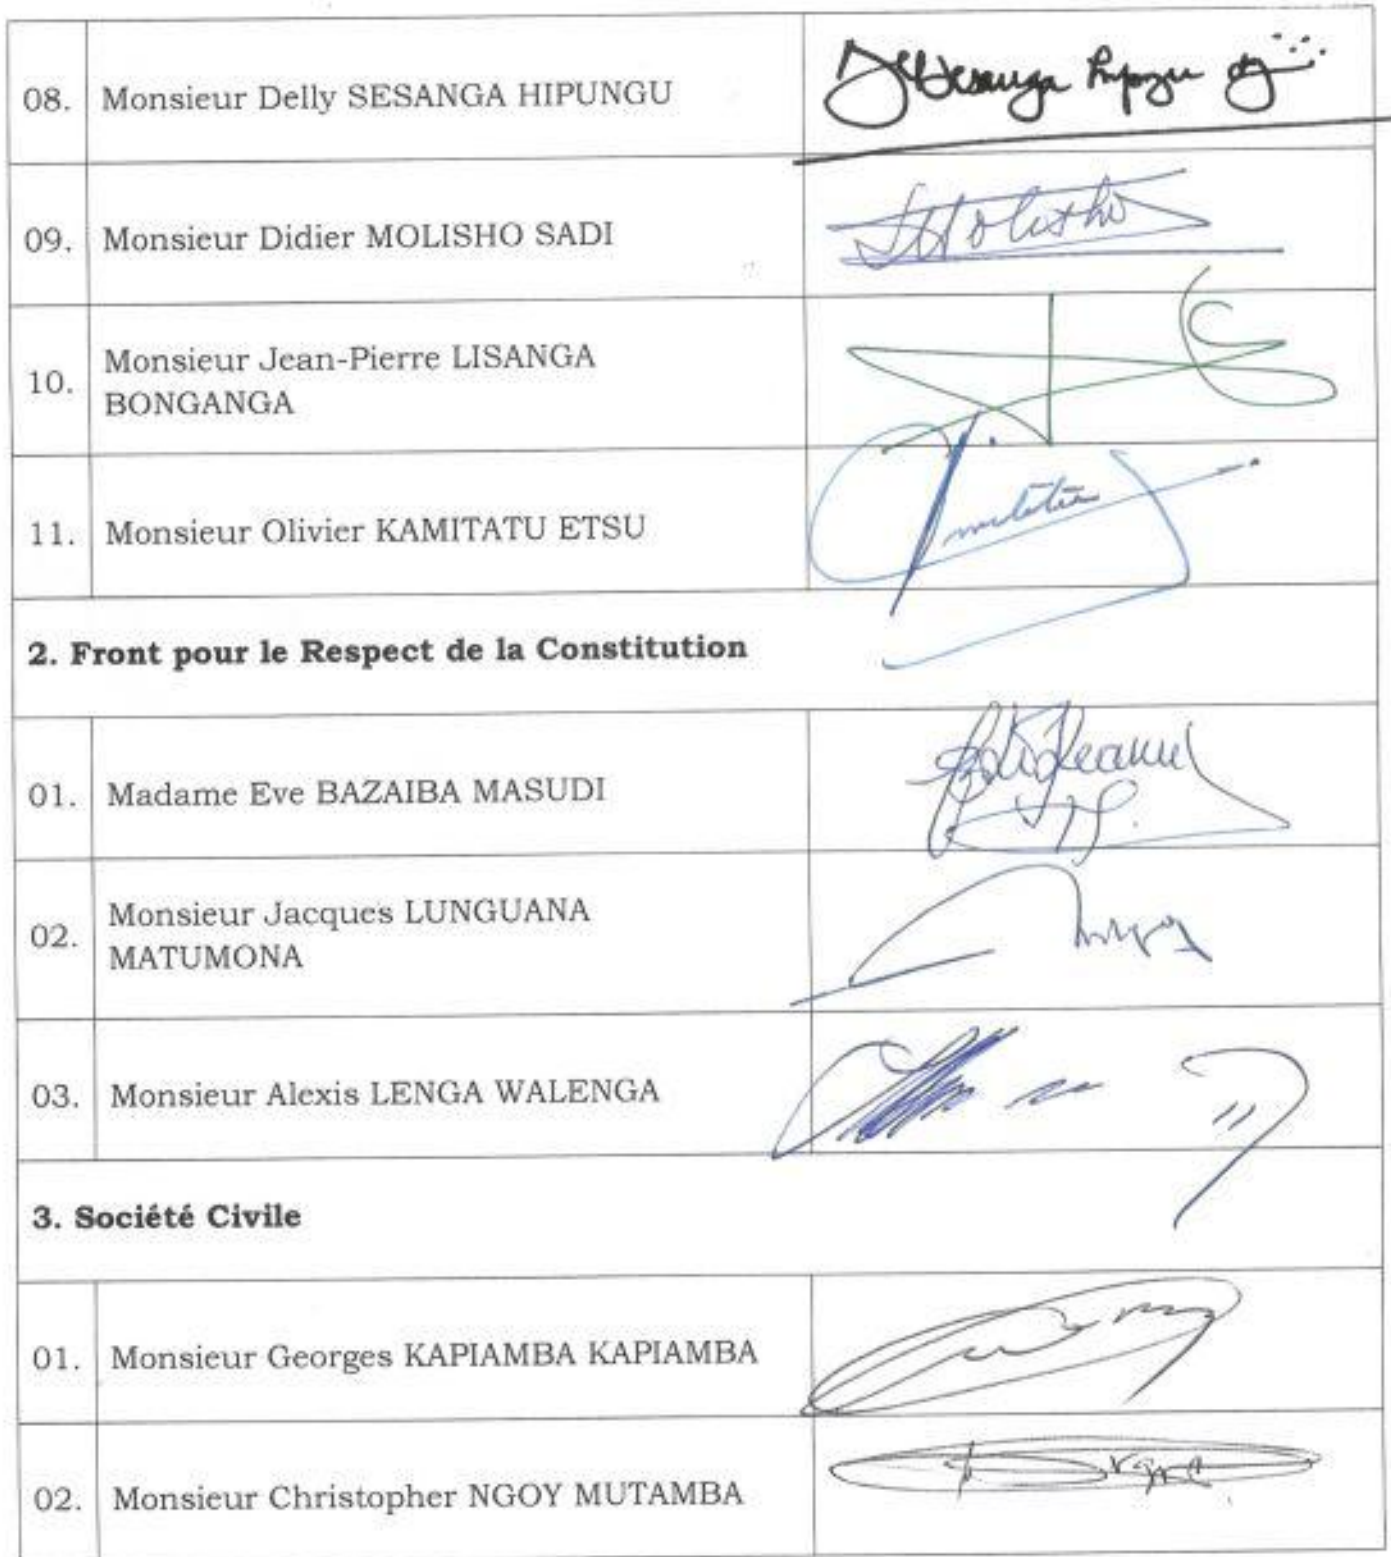 08. Monsieur Delly SESANGA HIPUNGU
09. Monsieur Didier MOLISHO SADI
10. Monsieur Jean-Pierre LISANGA
BONGANGA
11. Monsieur Olivier KAMITATU ETSU
2. Front pour le Respect de la Constitution
01. Madame Eve BAZAIBA MASUDI
02. Monsieur Jacques LUNGUANA
MATUMONA
03. Monsieur Alexis LENGA WALENGA
3. Société Civile
01. Monsieur Georges KAPIAMBA KAPIAMBA
02. Monsieur Christopher NGOY MUTAMBA